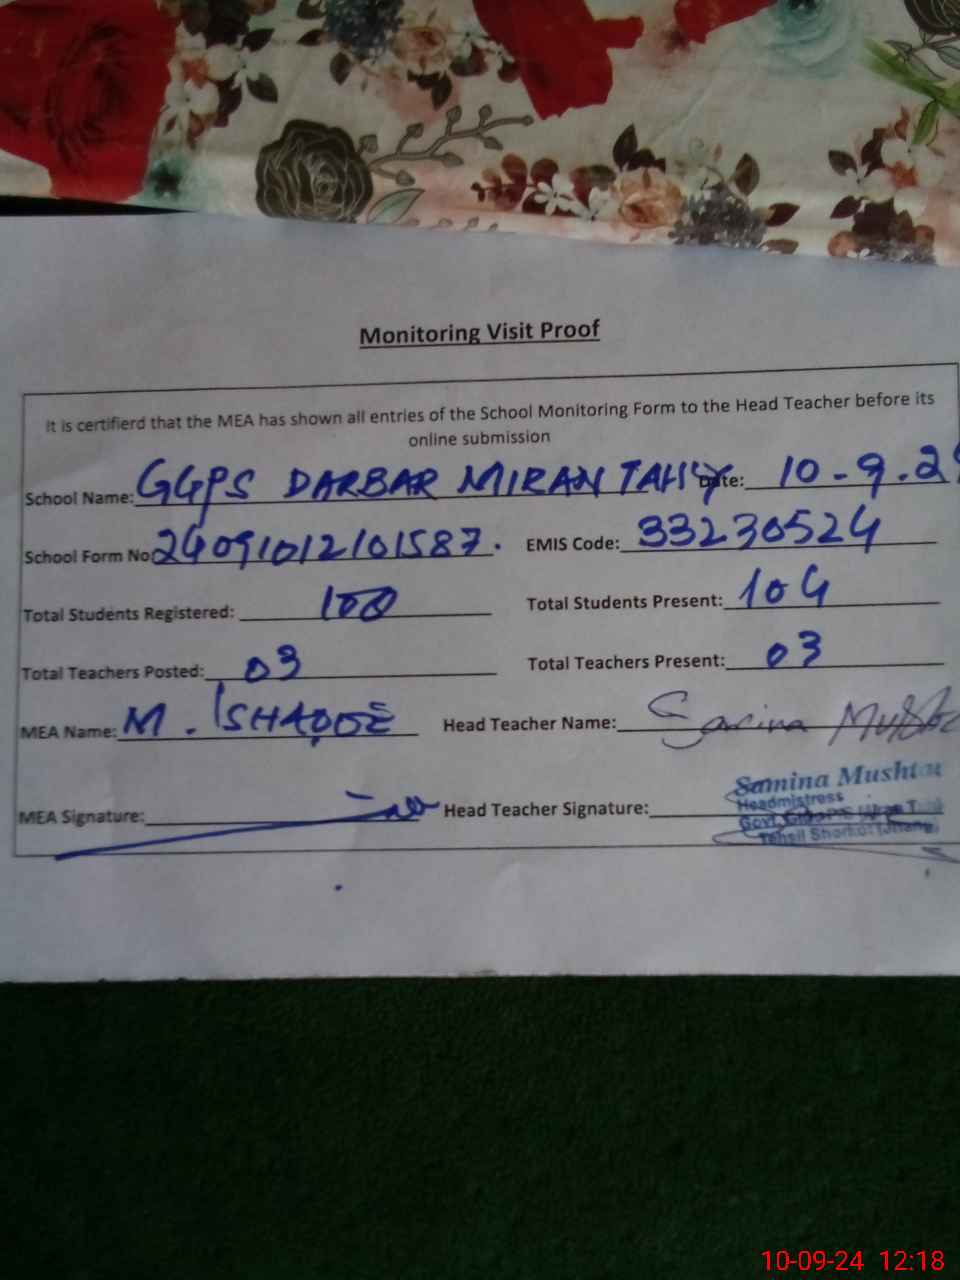 Monitoring Visit Proof
It is certifierd that the MEA has shown all entries of the School Monitoring Form to the Head Teacher before its
online submission
School Name: GGPS DARBAR MIRAN TAHLY Date: 10-9.2
School Form No 24091012101587. EMIS Code: 33230524
Total Students Registered: Total Students Present: 104
Total Teachers Posted: 03 Total Teachers Present: 03
MEA Name: M. ISHAQUE Head Teacher Name: Samina Mushta
MEA Signature: Head Teacher Signature:
Samina Mushta
Headmistress
Govt.
Tehsil Shorkot (Jhang)
10-09-24 12:18